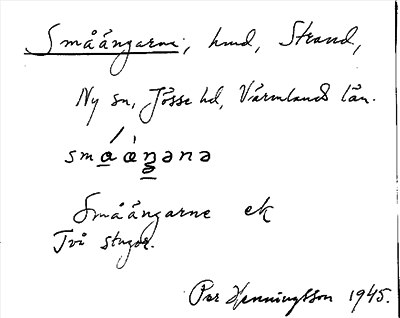 Småängarne, hmd, Strand,
Ny sn, Jösse hd, Värmlands län.
småäŋənə
Småängarne ek
Två stugor.
Per Henningsson 1945.